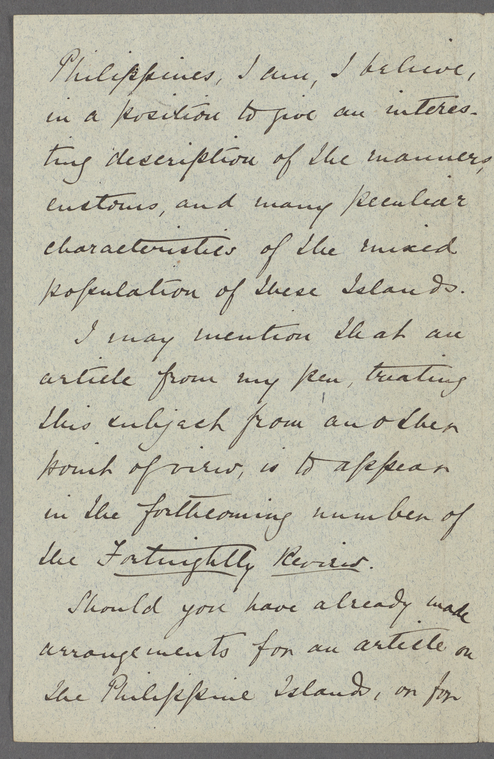 Philippines, I am, I believe,
in a position to give an interes-
ting description of the manners,
customs, and many peculiar
characteristics of the mixed
population of these Islands.
I may mention that an
article from my pen, treating
this subject from another
point of view, is to appear
in the forthcoming number of
the Fortnightly Review.
Should you have already made
arrangements for an article on
the Philippine Islands, or for